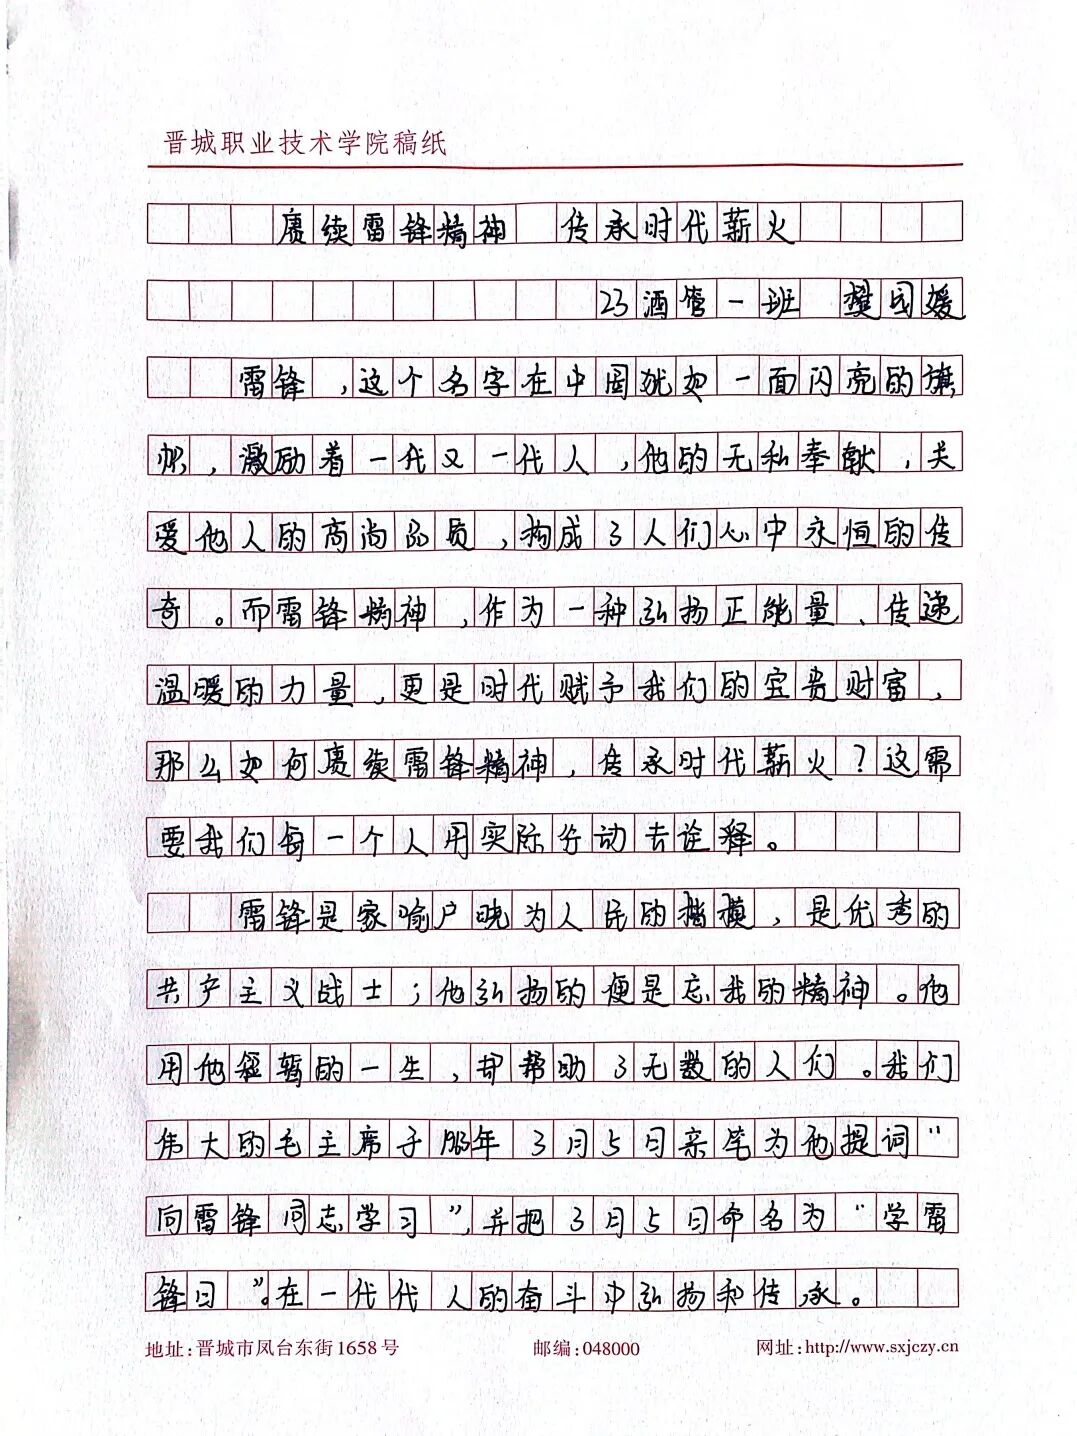 晋城职业技术学院稿纸
赓续雷锋精神 传承时代薪火
23酒管一班 樊园媛
雷锋，这个名字在中国犹如一面闪亮的旗
帜，激励着一代又一代人，他的无私奉献，关
爱他人的高尚品质，构成了人们心中永恒的传
奇。而雷锋精神，作为一种弘扬正能量、传递
温暖的力量，更是时代赋予我们的宝贵财富，
那么如何赓续雷锋精神，传承时代薪火？这需
要我们每一个人用实际行动去诠释。
雷锋是家喻户晓为人民的楷模，是优秀的
共产主义战士；他弘扬的便是忘我的精神。他
用他短暂的一生，却帮助了无数的人们。我们
伟大的毛主席于1963年3月5日亲笔为他提词“
向雷锋同志学习”，并把3月5日命名为“学雷
锋日”。在一代代人的奋斗中弘扬和传承。
地址：晋城市凤台东街1658号 邮编：048000 网址：http://www.sxjczy.cn